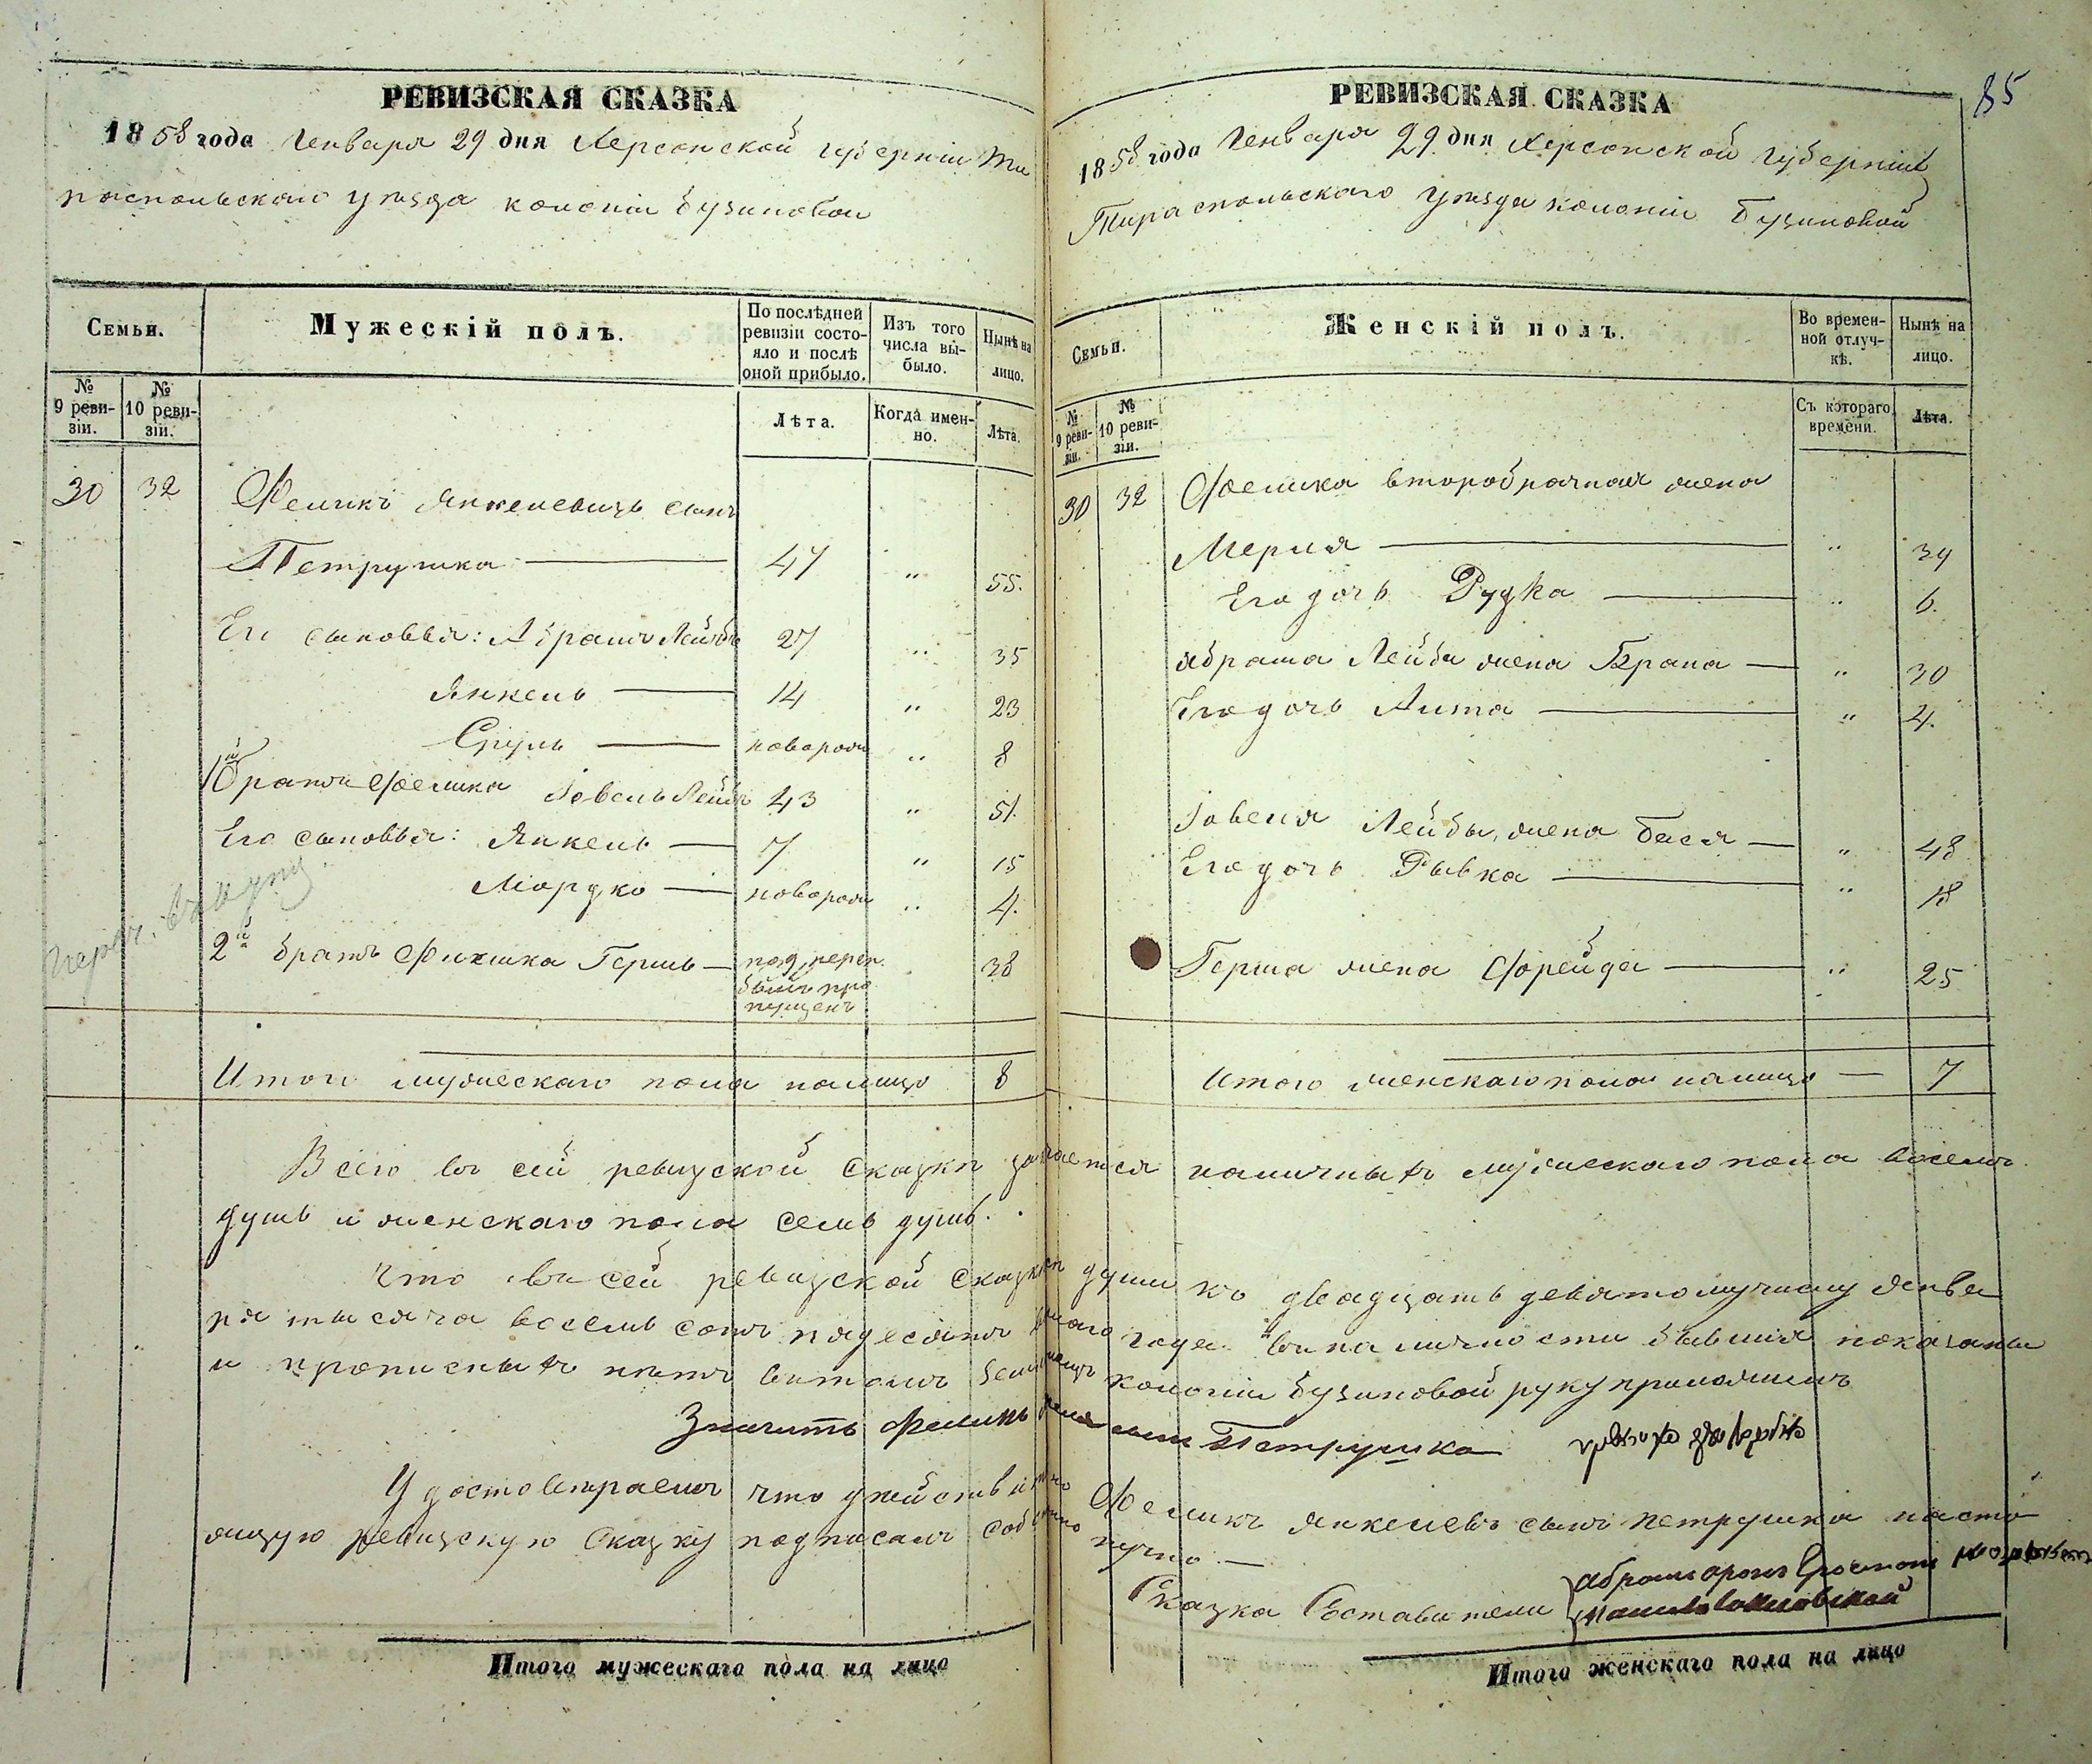 85
РЕВИЗСКАЯ СКАЗКА
1858 года Генваря 29 дня Херсонской губерніи Ти
распольскаго уѣзда колоніи Бузиновой
Семьи.
Мужескій полъ.
По послѣдней ревизіи состояло и послѣ оной прибыло.
Изъ того числа выбыло.
Нынѣ на лицо.
№ 9 ревизіи.
№ 10 ревизіи.
Лѣта.
Когда именно.
Лѣта.
30 32 Феликъ Янкелевичъ сынъ
Петрушка 47 " 55.
Его сыновья: Абрамъ Лейба 27 " 35
Янкель 14 " 23
Сруль новорож " 8
1й братъ Фелика Іовель Лейба 43 " 51.
Его сыновья: Янкель 7 " 15
Мордко новорож " 4.
2й братъ Филика Гершъ под. переп. былъ пропущенъ 38
Итого мужескаго пола налицо 8
РЕВИЗСКАЯ СКАЗКА
1858 года Генваря 29 дня Херсонской губерніи
Тираспольскаго уѣзда колоніи Бузиновой
Семьи.
Женскій полъ.
Во временной отлучкѣ.
Нынѣ на лицо.
№ 9 ревизіи.
№ 10 ревизіи.
Съ котораго времени.
Лѣта.
30 32 Фелика второбрачная жена
Мерия " 39
Его дочь Рудка " 6.
Абрама Лейби жена Брана " 30
Его дочь Лита " 4.
Іовеля Лейбы, жена Бася " 48
Его дочь Рывка " 18
Герша жена Фрейда " 25
Итого женскаго пола налицо 7
Всего въ сей ревизской сказкѣ значется наличныхъ мужескаго пола восемь
душъ и женскаго пола семь душъ.
Что въ сей ревизской сказкѣ души къ двадцать девятому числу Янва
ря тысяча восемь сотъ пядесятъ года въ наличности бывшия показаны
и прописныхъ нѣтъ въ томъ колоніи Бузиновой руку приложилъ
Значитъ Феликъ сынъ Петрушка
Удостовѣряемъ что дѣйствительно Феликъ Янкелевъ сынъ Петрушка насто
ящую ревизскую сказку подписалъ собственноручно
Сказка Составители
Итого мужескаго пола на лицо
Итого женскаго пола на лицо